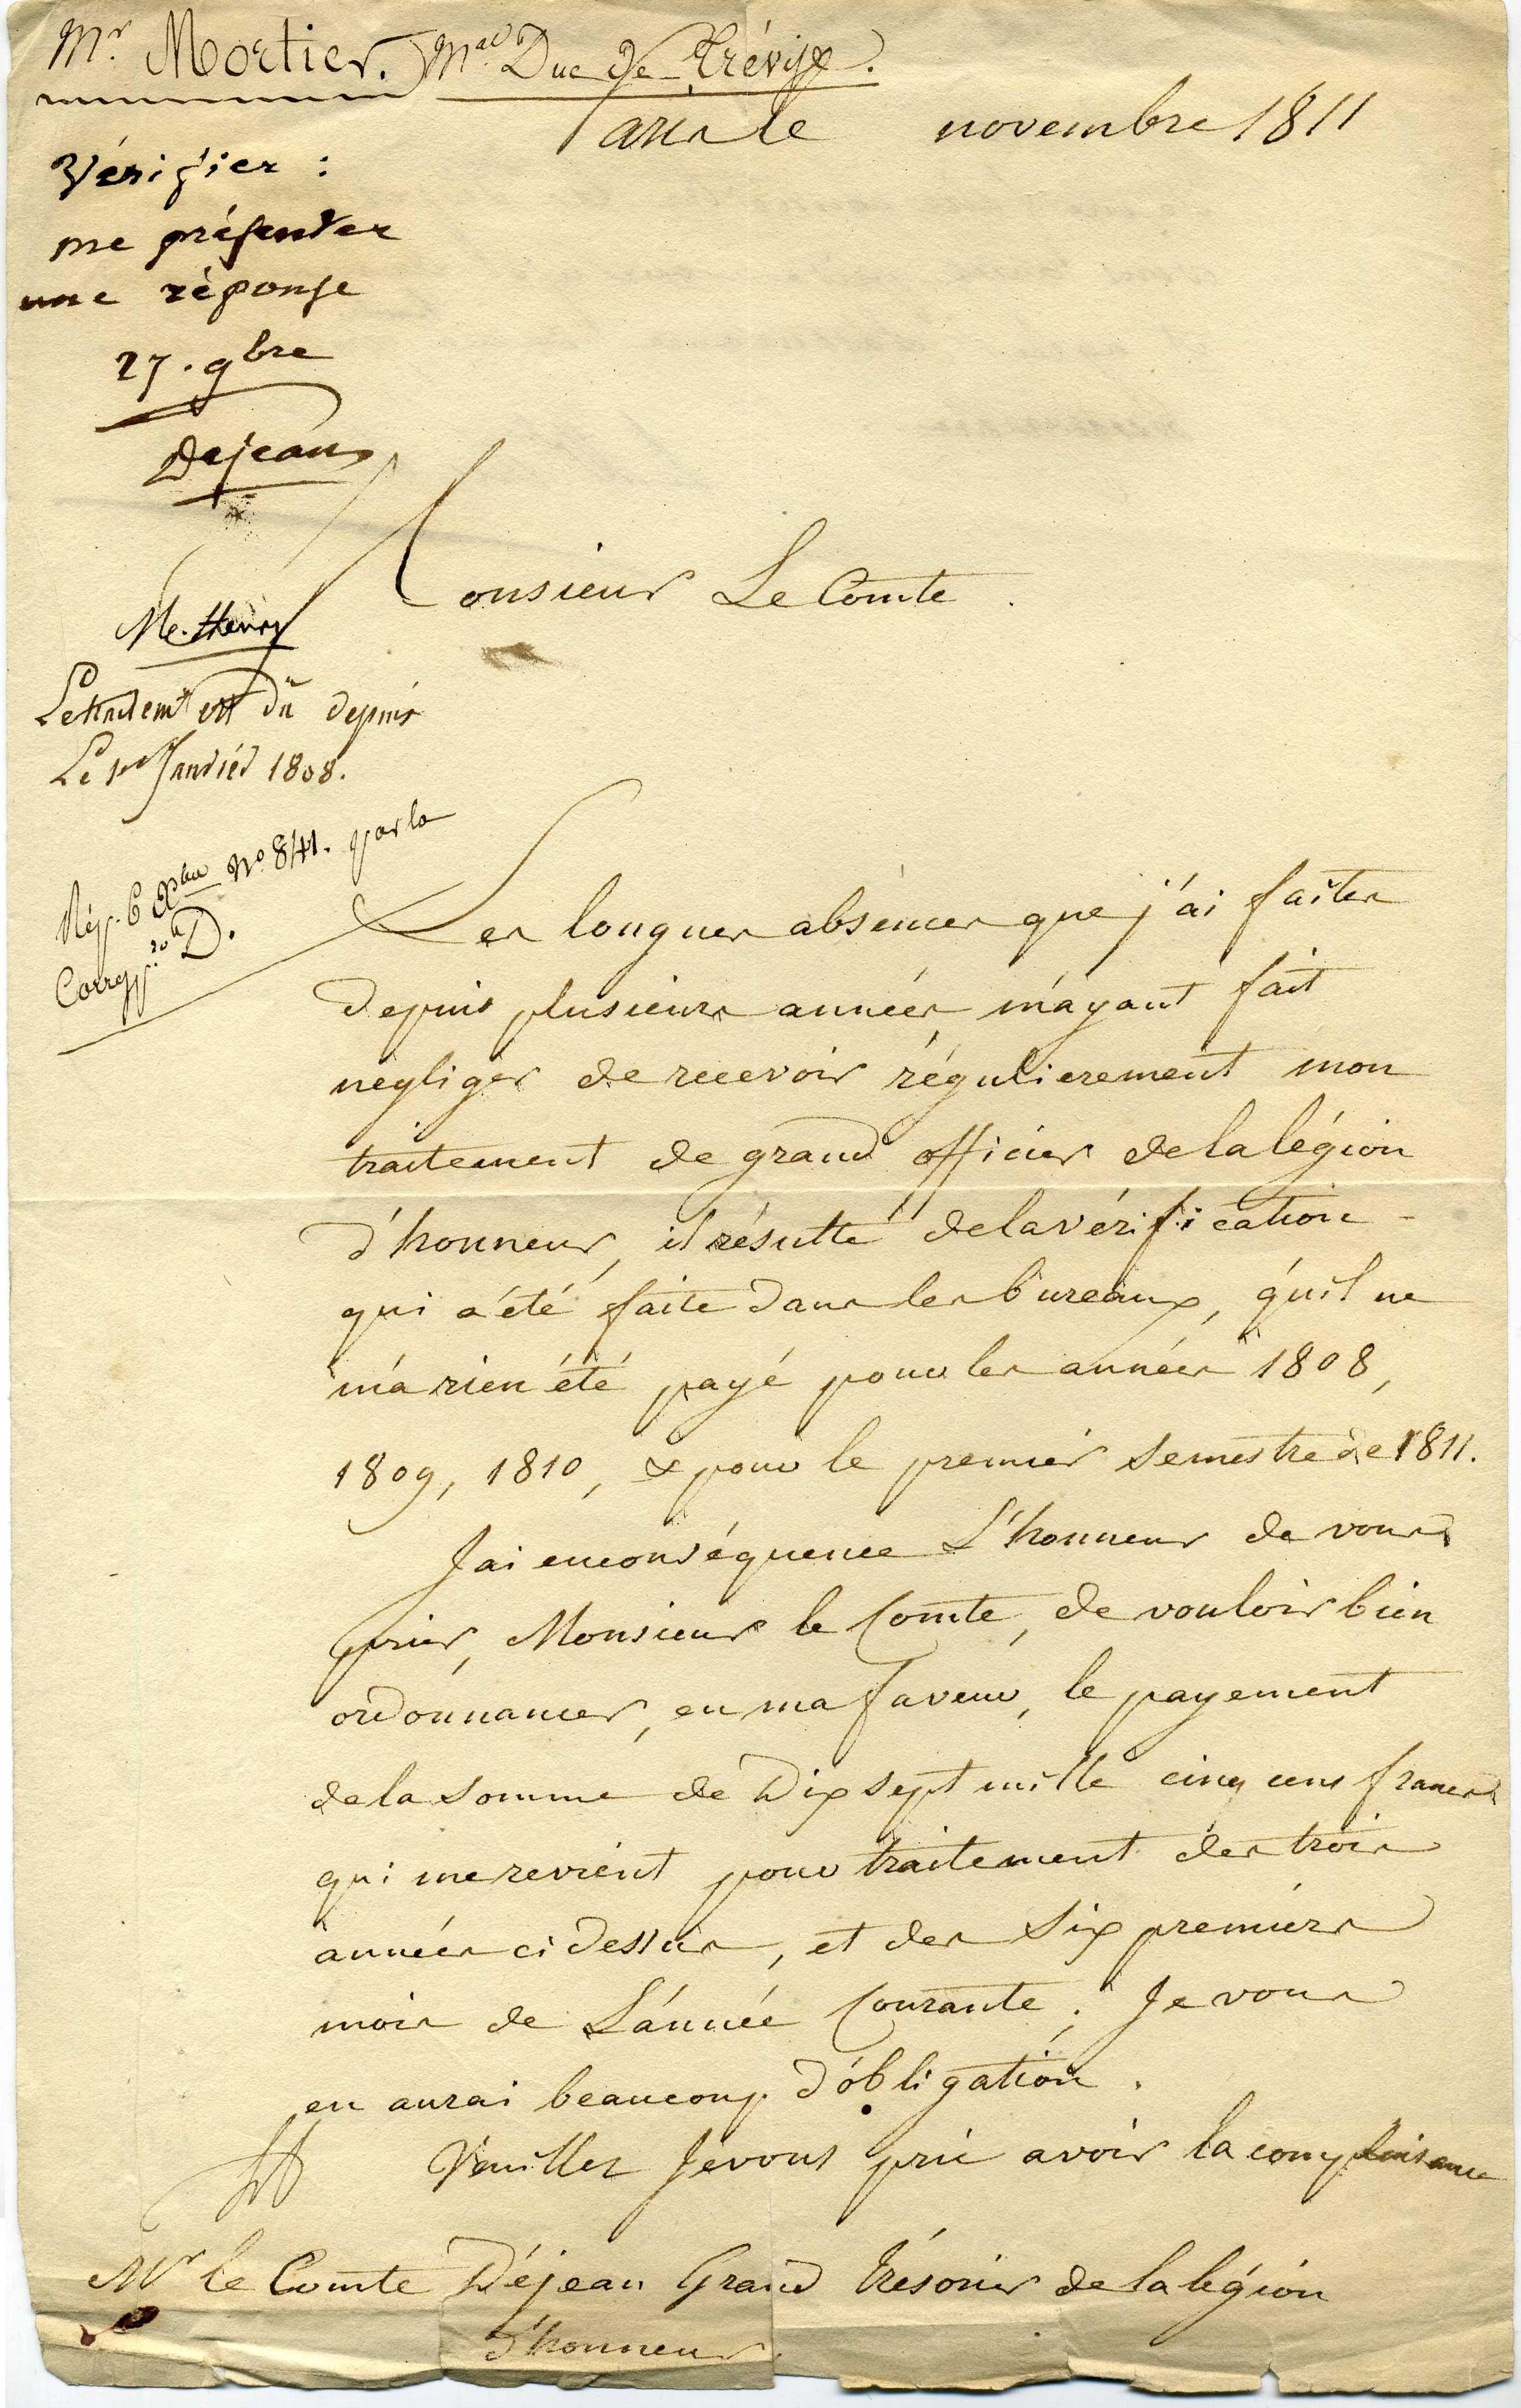 Mr Mortier. Mal Duc de Trévise.
Paris le novembre 1811
Vérifier :
me présenter
une réponse
27. 9bre
Dejean
Mr. Henry
Le traitemt est dû depuis
Le 1er Janvier 1808.
Rép. 6 Xbre No 841. par la
Corresp. D.
Monsieur Le Comte.
Les longues absences que j'ai faites
depuis plusieurs années, m'ayant fait
negliger de recevoir régulierement mon
traitement de grand officier de la légion
d'honneur, il résulte de la vérification
qui a été faite dans les bureaux, qu'il ne
m'a rien été payé pour les années 1808,
1809, 1810, & pour le premier semestre de 1811.
J'ai en conséquence L'honneur de vous
prier, Monsieur le Comte, de vouloir bien
ordonnancer, en ma faveur, le payement
de la somme de Dix sept mille cinq cens francs
qui me revient pour traitement des trois
années ci dessus, et des six premiers
mois de L'année Courante. Je vous
en aurai beaucoup d'obligation.
Veuillez Je vous prie avoir la complaisance
Mr le Comte Déjean Grand trésorier de la légion
d'honneur.